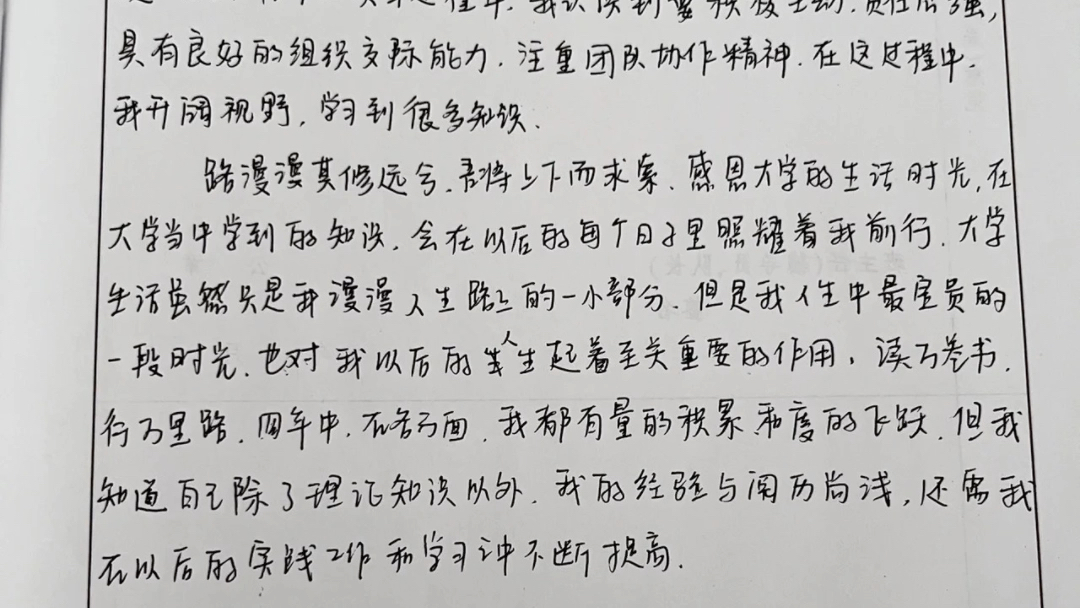 我认识到要积极主动,责任心强,
具有良好的组织交际能力,注重团队协作精神,在这过程中,
我开阔视野,学习到很多知识.
路漫漫其修远兮,吾将上下而求索,感恩大学的生活时光,在
大学当中学到的知识,会在以后的每个日子里照耀着我前行,大学
生活虽然只是我漫漫人生路上的一小部分,但是我人生中最宝贵的
一段时光,也对我以后的人生起着至关重要的作用,读万卷书,
行万里路,四年中,在各方面,我都有量的积累和度的飞跃,但我
知道自己除了理论知识以外,我的经验与阅历尚浅,还需我
在以后的实践工作和学习中不断提高.